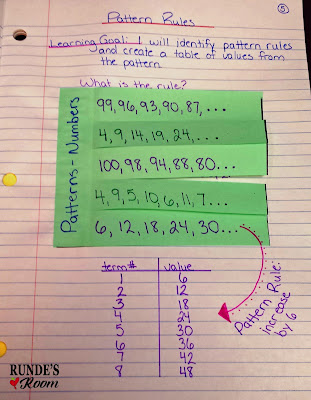 5
Pattern Rules
Learning Goal: I will identify pattern rules
and create a table of values from
the pattern
What is the rule?
Patterns - Numbers
99, 96, 93, 90, 87, ...
4, 9, 14, 19, 24, ...
100, 98, 94, 88, 80...
4, 9, 5, 10, 6, 11, 7...
6, 12, 18, 24, 30...
term# value
1 6
2 12
3 18
4 24
5 30
6 36
7 42
8 48
Pattern Rule:
increase
by 6
RUNDE'S
Room